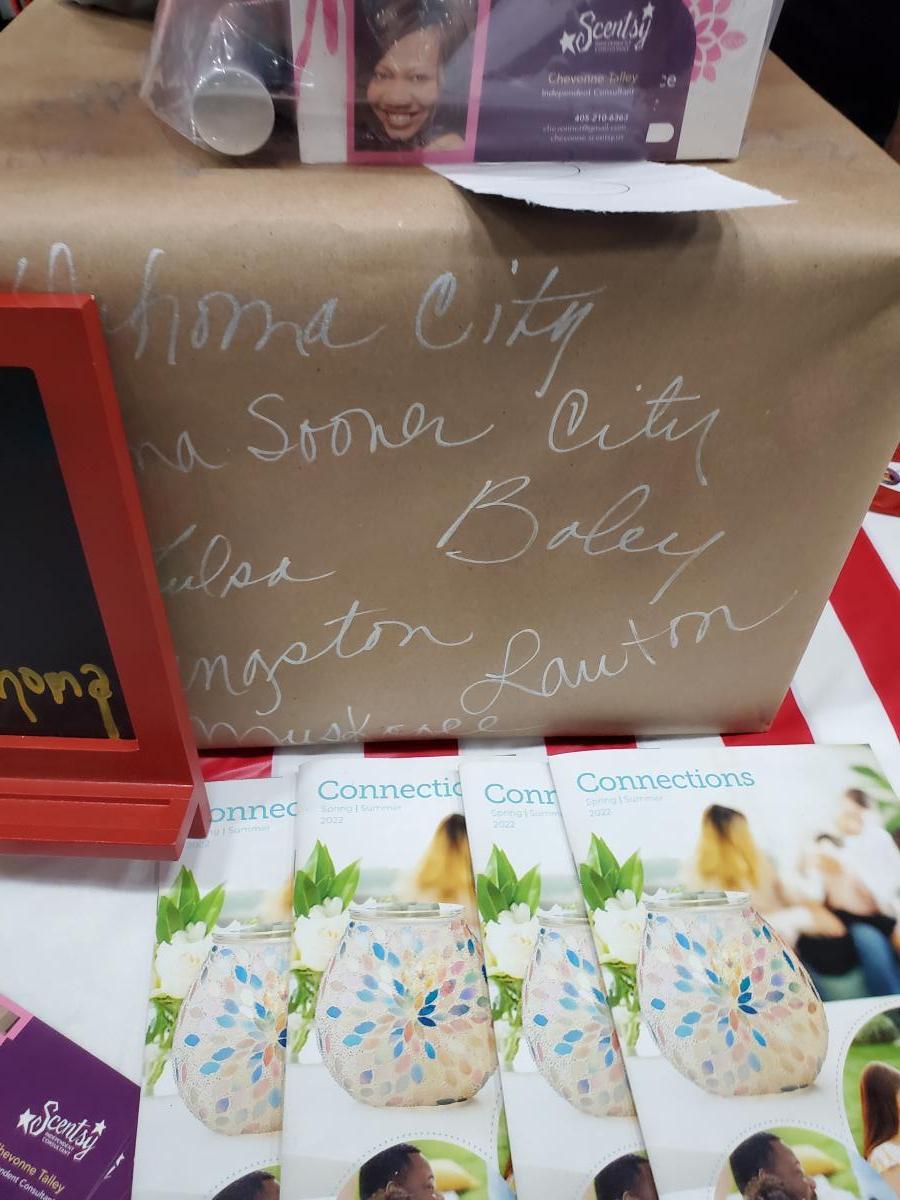 Scentsy
INDEPENDENT CONSULTANT
Chevonne Talley
Independent Consultant
405-210-6363
chevonnet@gmail.com
chevonne.scentsy.us
ce
homa City
na Sooner City
Tulsa Boley
ngston Lawton
Muskogee
homa
Connections
Spring | Summer
2022
Connectio
Spring | Summer
2022
Conn
Spring | Summ
2022
onnec
g | Summer
2022
Scentsy
INDEPENDENT CONSULTANT
hevonne Talley
ndent Consultant